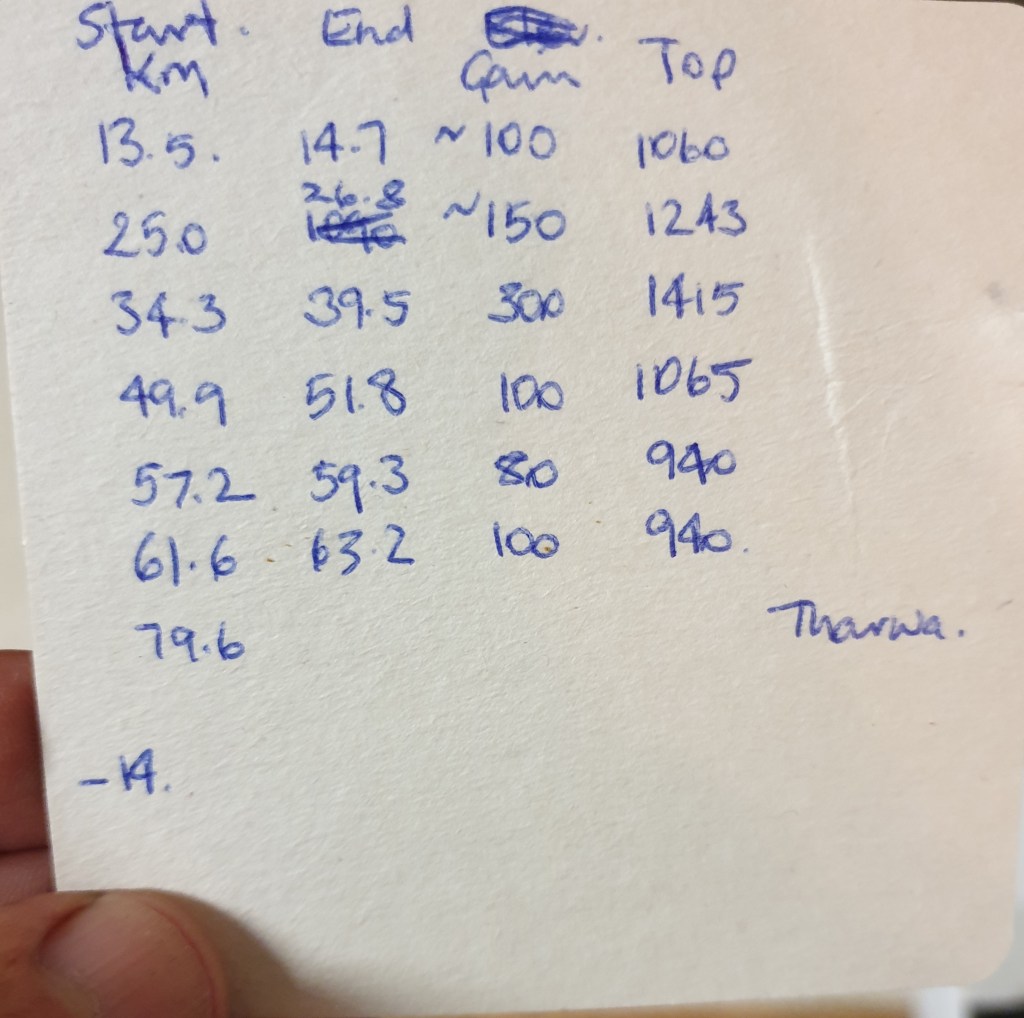 Start. End
Km Gain Top
13.5. 14.7 ~100 1060
25.0 26.8 ~150 1243
34.3 39.5 300 1415
49.9 51.8 100 1065
57.2 59.3 80 940
61.6 63.2 100 940.
79.6 Tharwa.
-14.